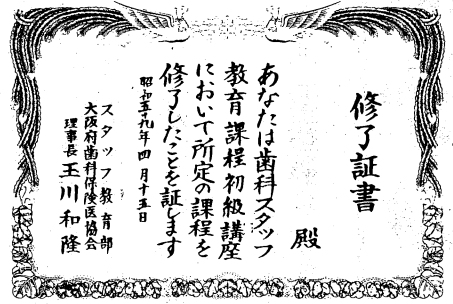 修了証書
殿
あなたは歯科スタッフ
教育課程初級講座
において所定の課程を
修了したことを証します
昭和五十九年四月十五日
スタッフ教育部
大阪府歯科保険医協会
理事長 玉川和隆